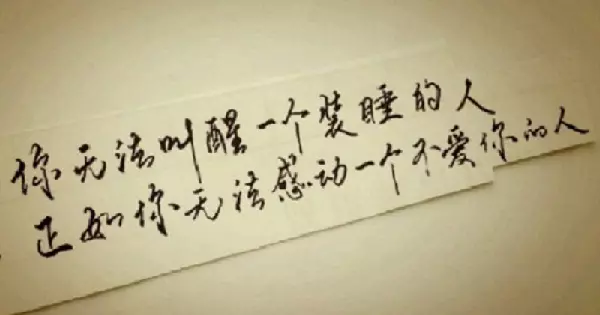 你无法叫醒一个装睡的人
正如你无法感动一个不爱你的人